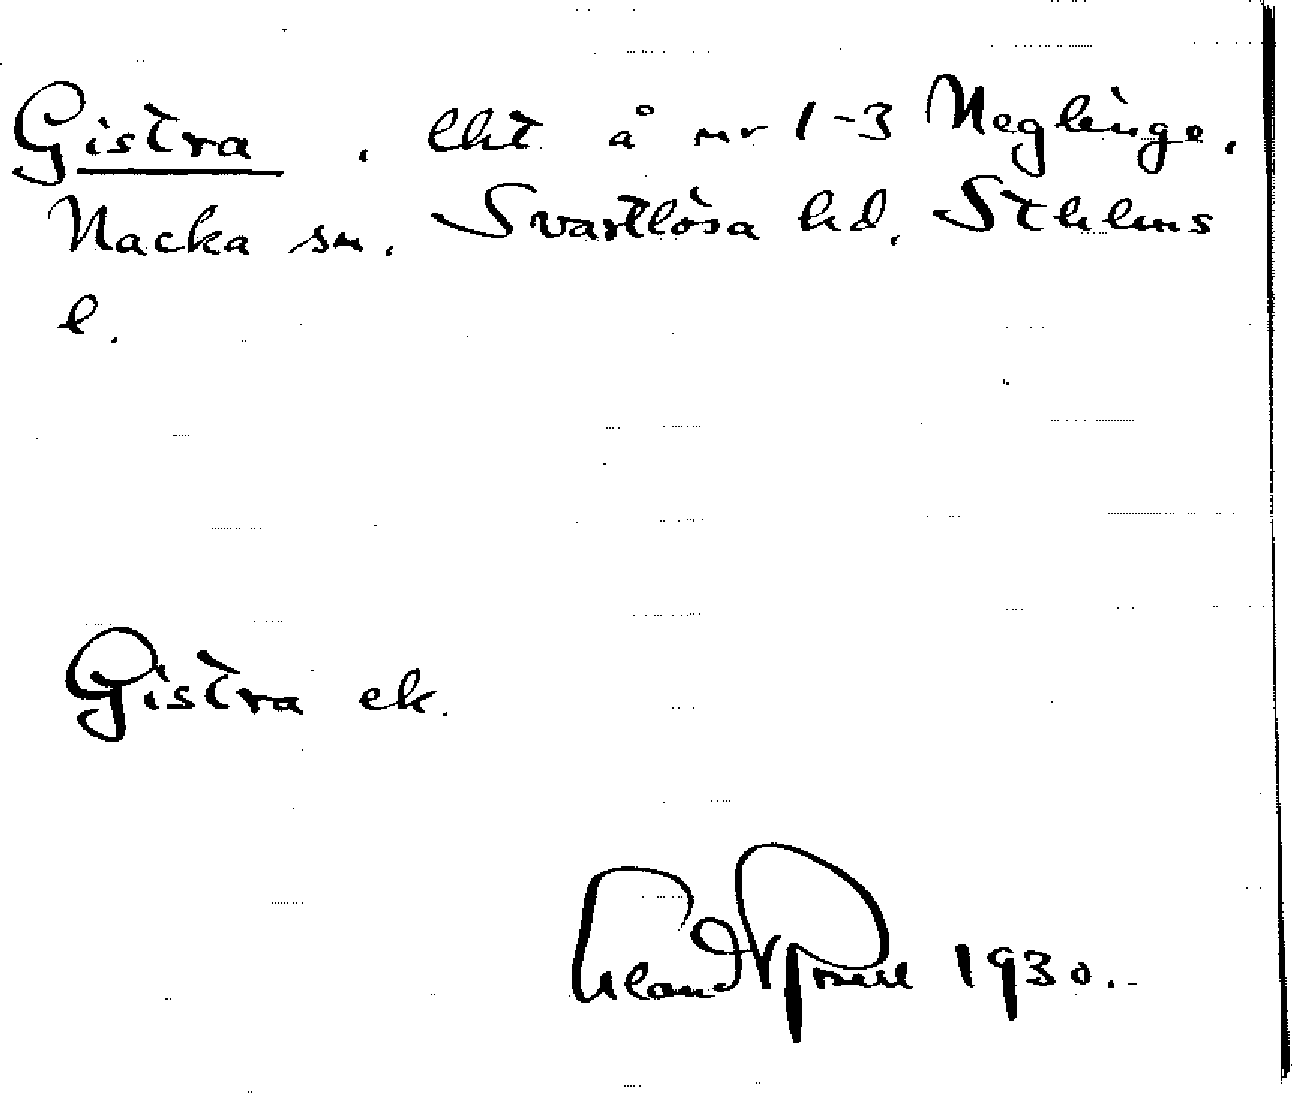 Gistra. lht å nr 1-3 Neglinge.
Nacka sn. Svartlösa hd. Sthlms
l.
Gistra ek.
1930.-